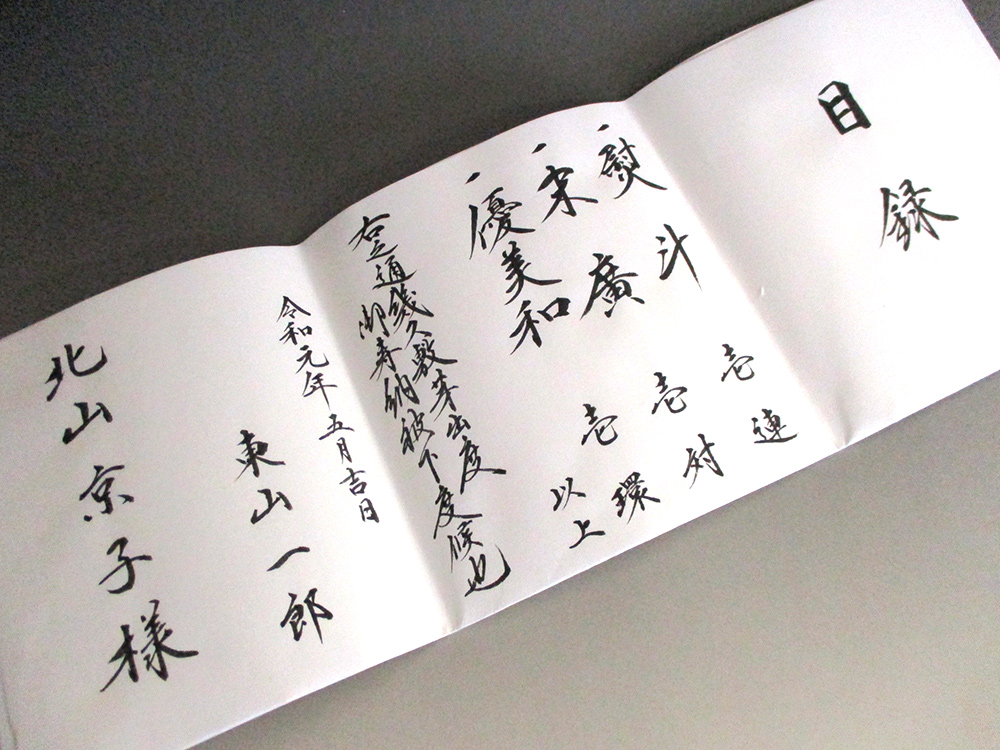 目録
一 熨斗 壱連
一 末廣 壱対
一 優美和 壱環
以上
右之通幾久敷芽出度
御寿納被下度候也
令和元年五月吉日
東山一郎
北山京子様